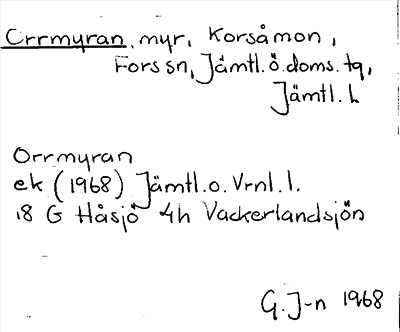 Orrmyran, myr, Korsåmon,
Fors sn, Jämtl. ö. doms. tg,
Jämtl. L
Orrmyran
ek (1968) Jämtl. o. Vrnl. l.
18 G Håsjö 4h Vackerlandsjön
G. J-n 1968